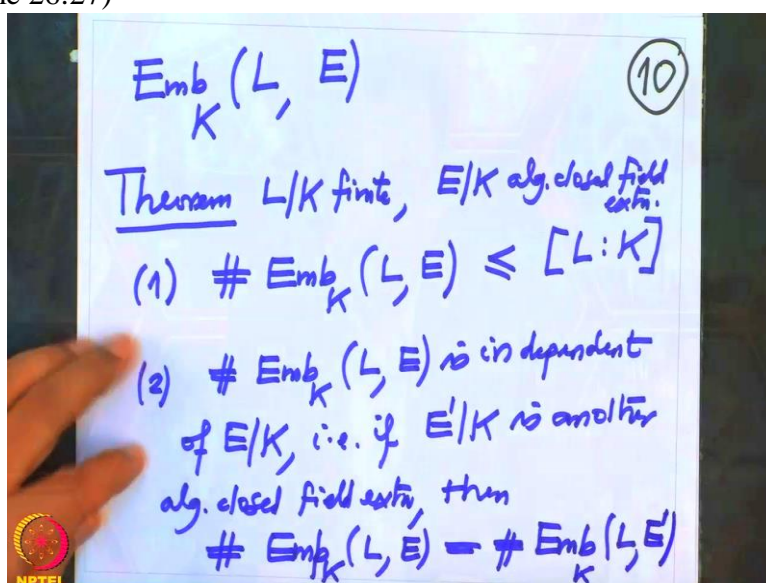 Emb_K (L, E)
10
Theorem L/K finite, E/K alg. closed field
extn.
(1) # Emb_K (L, E) ⩽ [L:K]
(2) # Emb_K (L, E) is independent
of E/K, i.e. if E'/K is another
alg. closed field extn, then
# Emb_K (L, E) = # Emb_K (L, E')
NPTEL